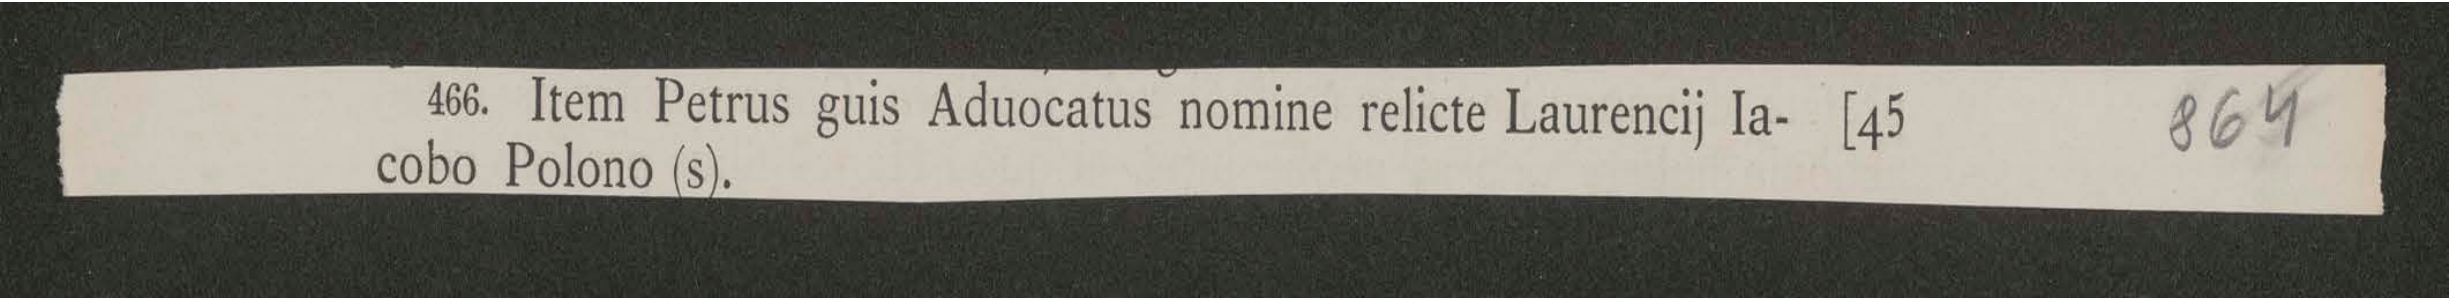 466. Item Petrus guis Aduocatus nomine relicte Laurencij Ia- [45 864
cobo Polono (s).